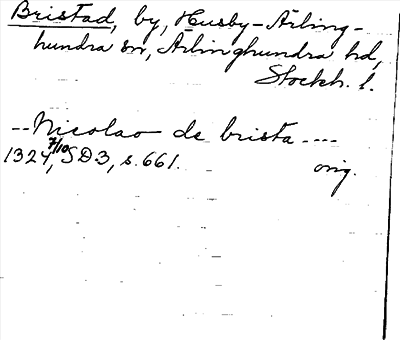 Bristad, by, Husby-Ärling-
hundra sn, Ärlinghundra hd,
Stockh. l.
--Nicolao de brista ----
1324 7/10, SD3, s. 661. orig.